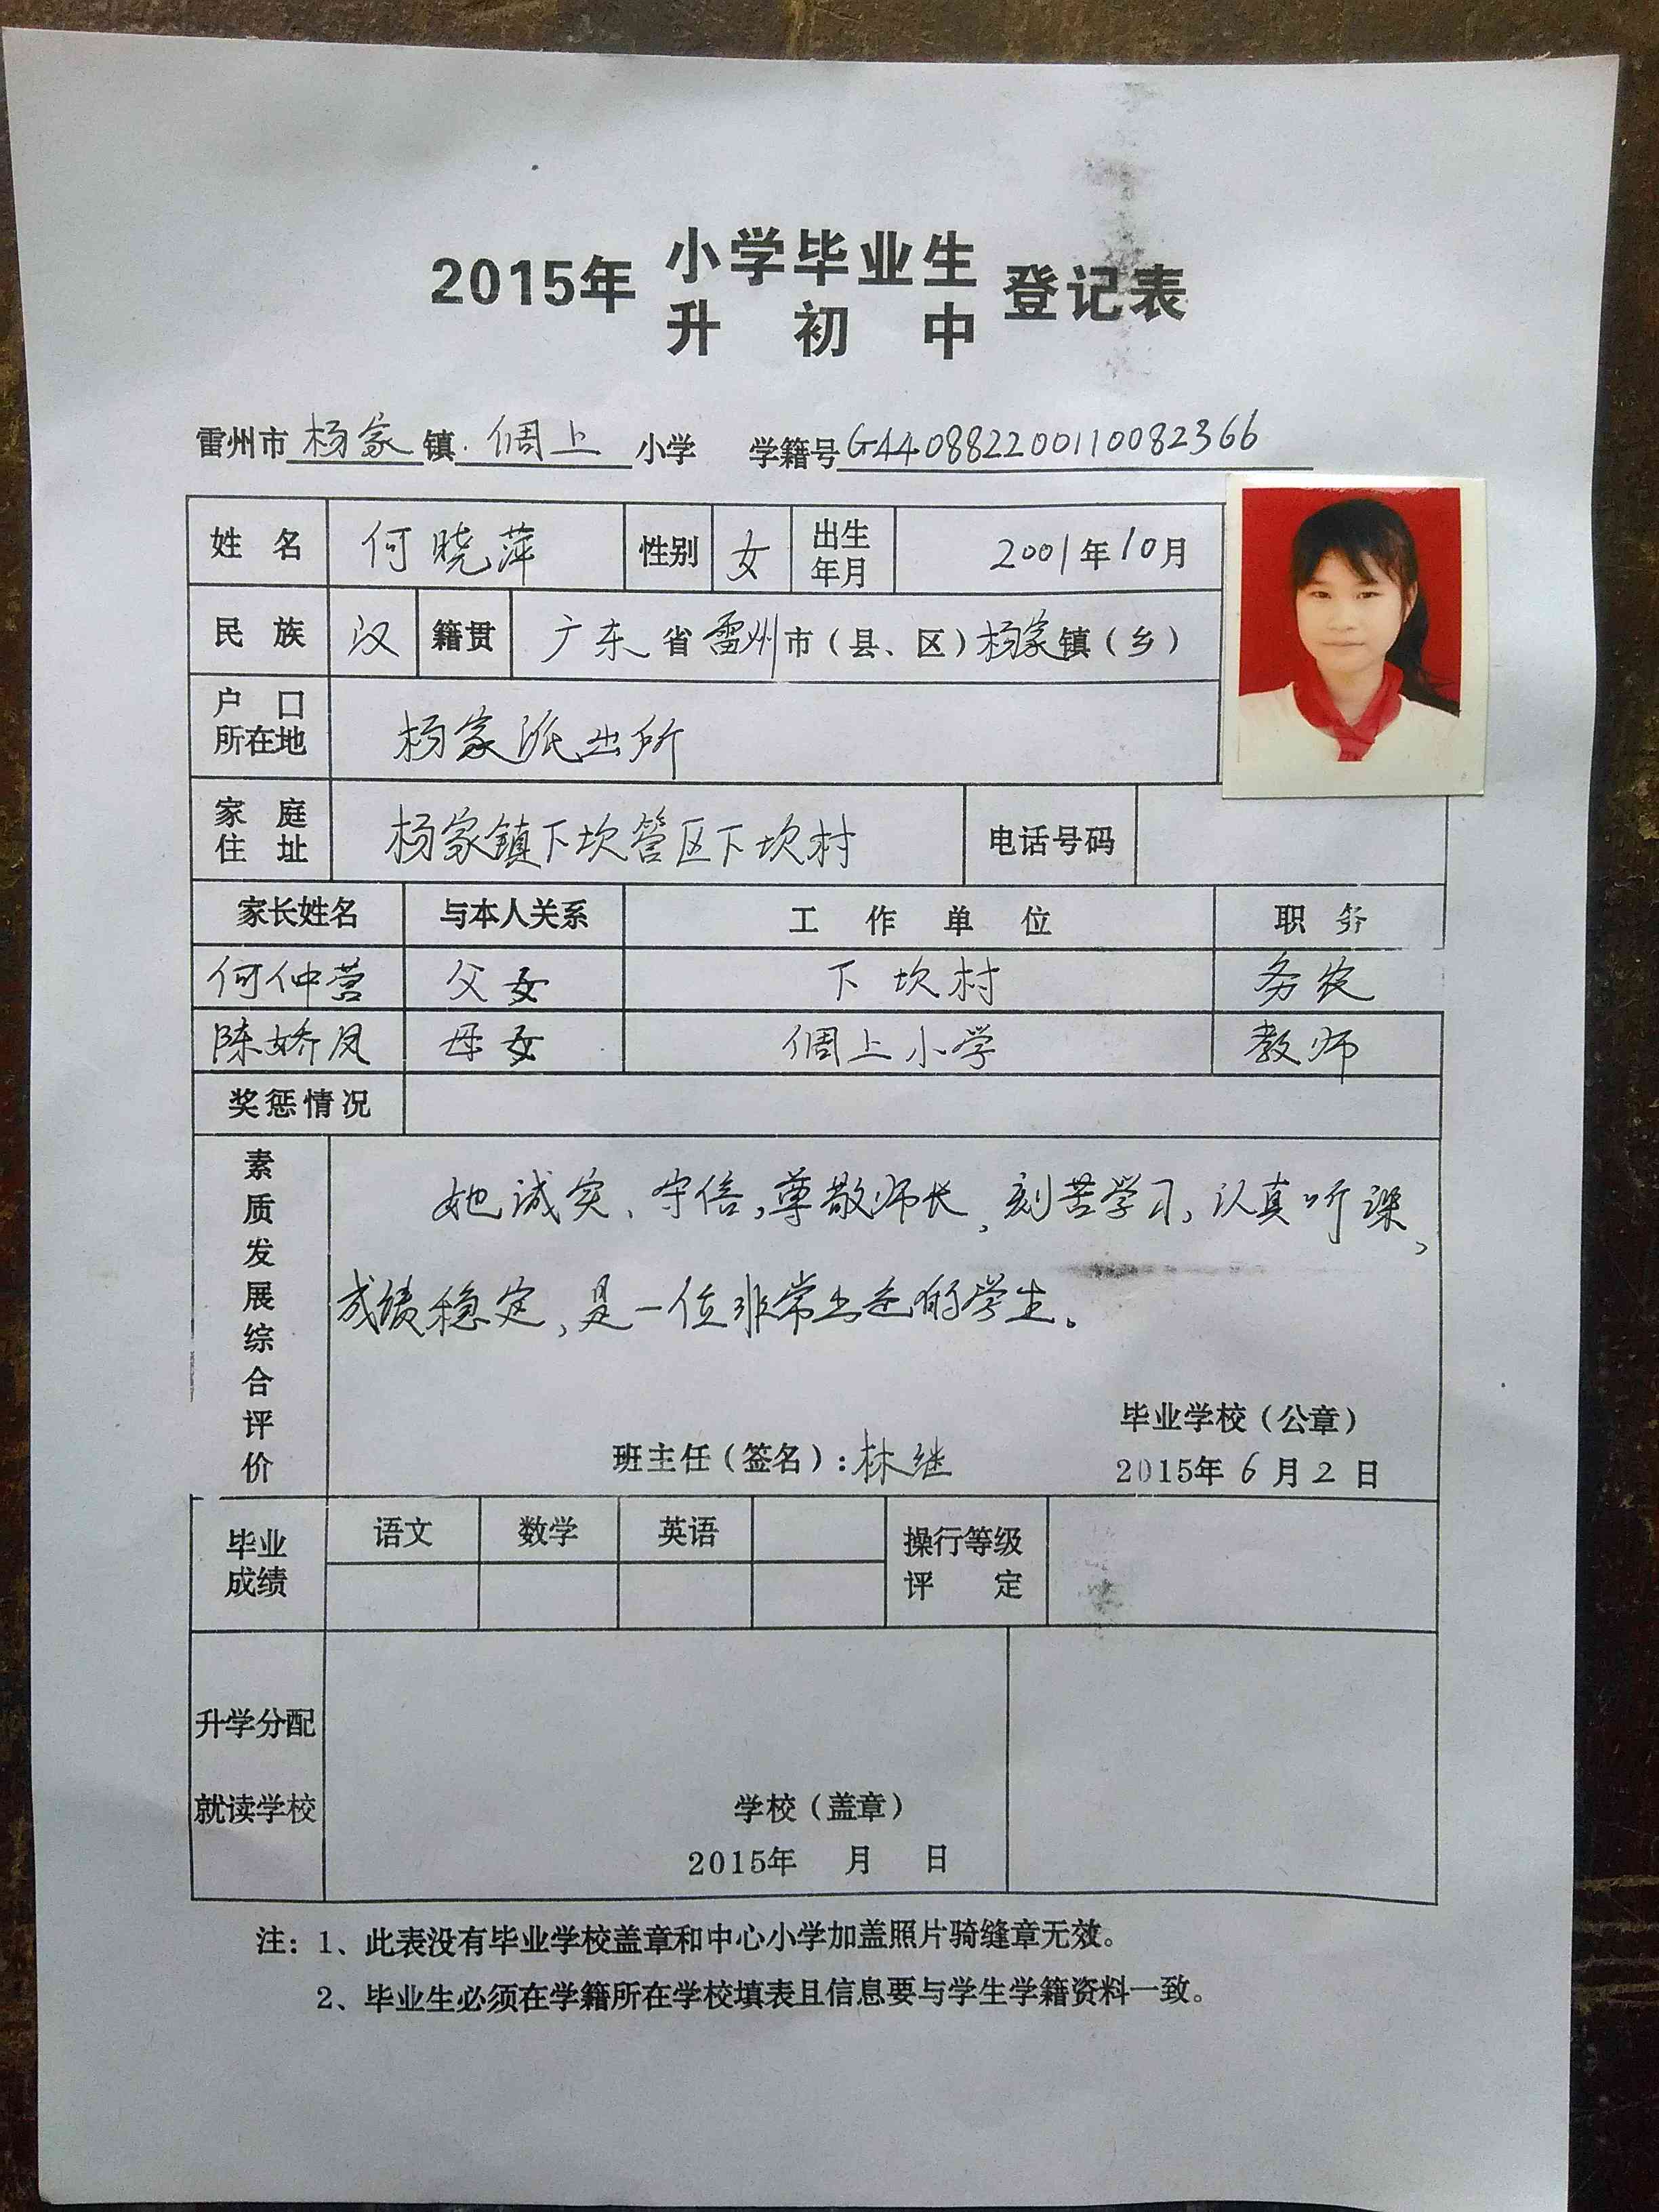 2015年 小学毕业生 登记表
升初中
雷州市 杨家 镇 倜上 小学 学籍号 G440882200110082366
姓名 何晓萍 性别 女 出生年月 2001年10月
民族 汉 籍贯 广东省雷州市（县、区）杨家镇（乡）
户口所在地 杨家派出所
家庭住址 杨家镇下坎管区下坎村 电话号码
家长姓名 与本人关系 工作单位 职务
何仲营 父女 下坎村 务农
陈娇凤 母女 倜上小学 教师
奖惩情况
素质发展综合评价
她诚实、守信，尊敬师长，刻苦学习，认真听课，
成绩稳定，是一位非常出色的学生。
毕业学校（公章）
班主任（签名）：林继 2015年6月2日
毕业成绩 语文 数学 英语 操行等级评定
升学分配
就读学校 学校（盖章）
2015年 月 日
注：1、此表没有毕业学校盖章和中心小学加盖照片骑缝章无效。
2、毕业生必须在学籍所在学校填表且信息要与学生学籍资料一致。